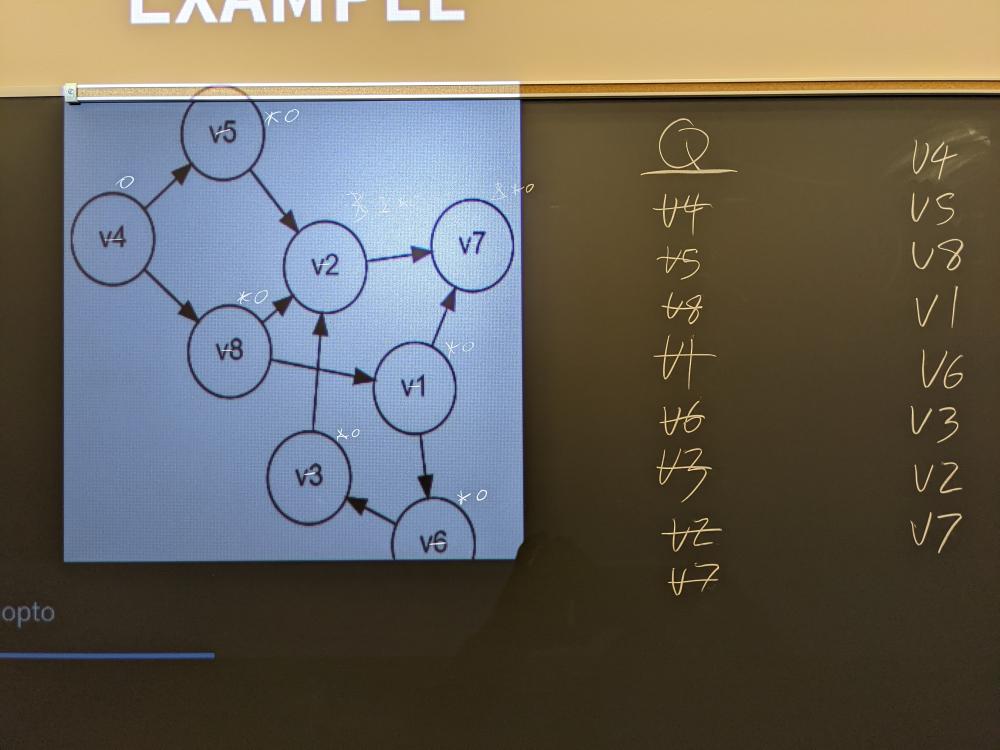 EXAMPLE
v5
0
0
v4
v2
v7
0
v8
0
v1
0
v3
0
v6
0
opto
Q
v4
v5
v8
v1
v6
v3
v2
v7
v4
v5
v8
v1
v6
v3
v2
v7